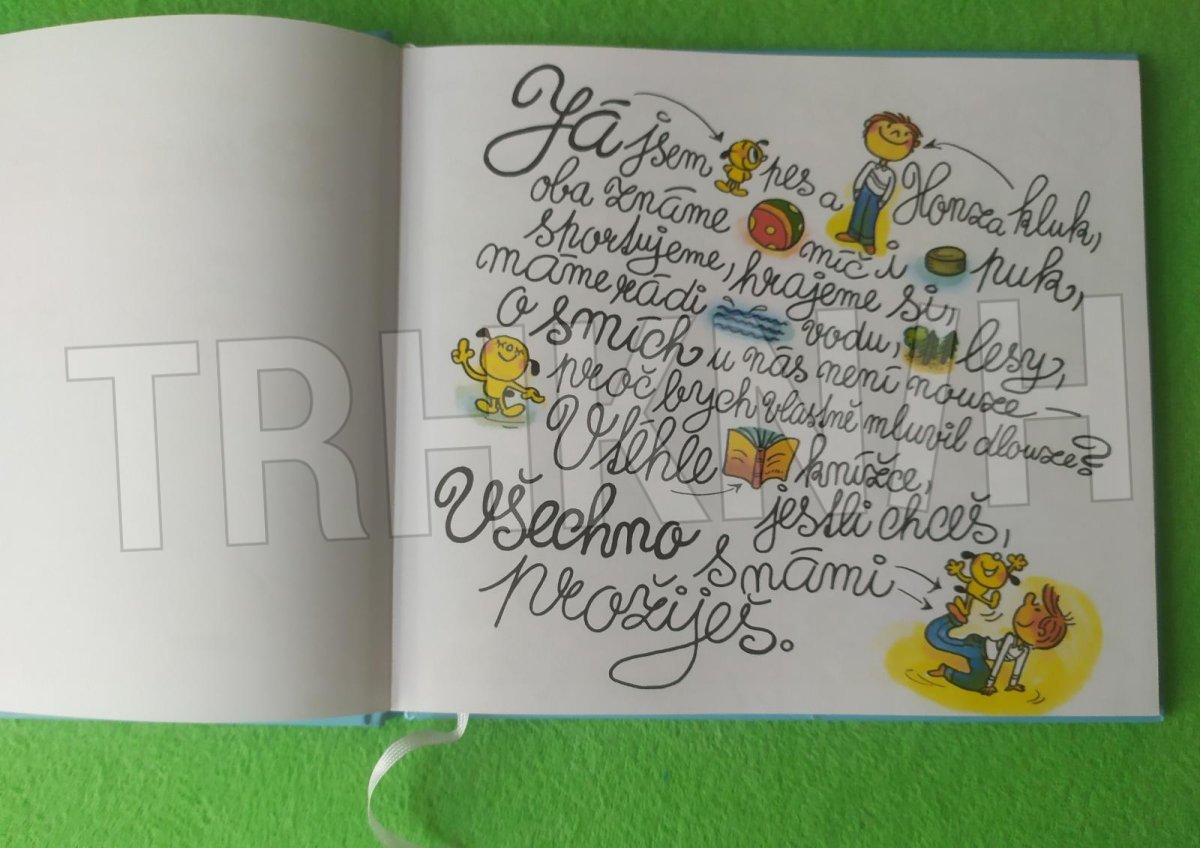 Já jsem pes a Honza kluk,
oba známe míč i puk,
sportujeme, hrajeme si,
máme rádi vodu, lesy,
o smích u nás není nouze –
proč bych vlastně mluvil dlouze?
V téhle knížce,
jestli chceš,
Všechno s námi
prožiješ.
TRHKNIH